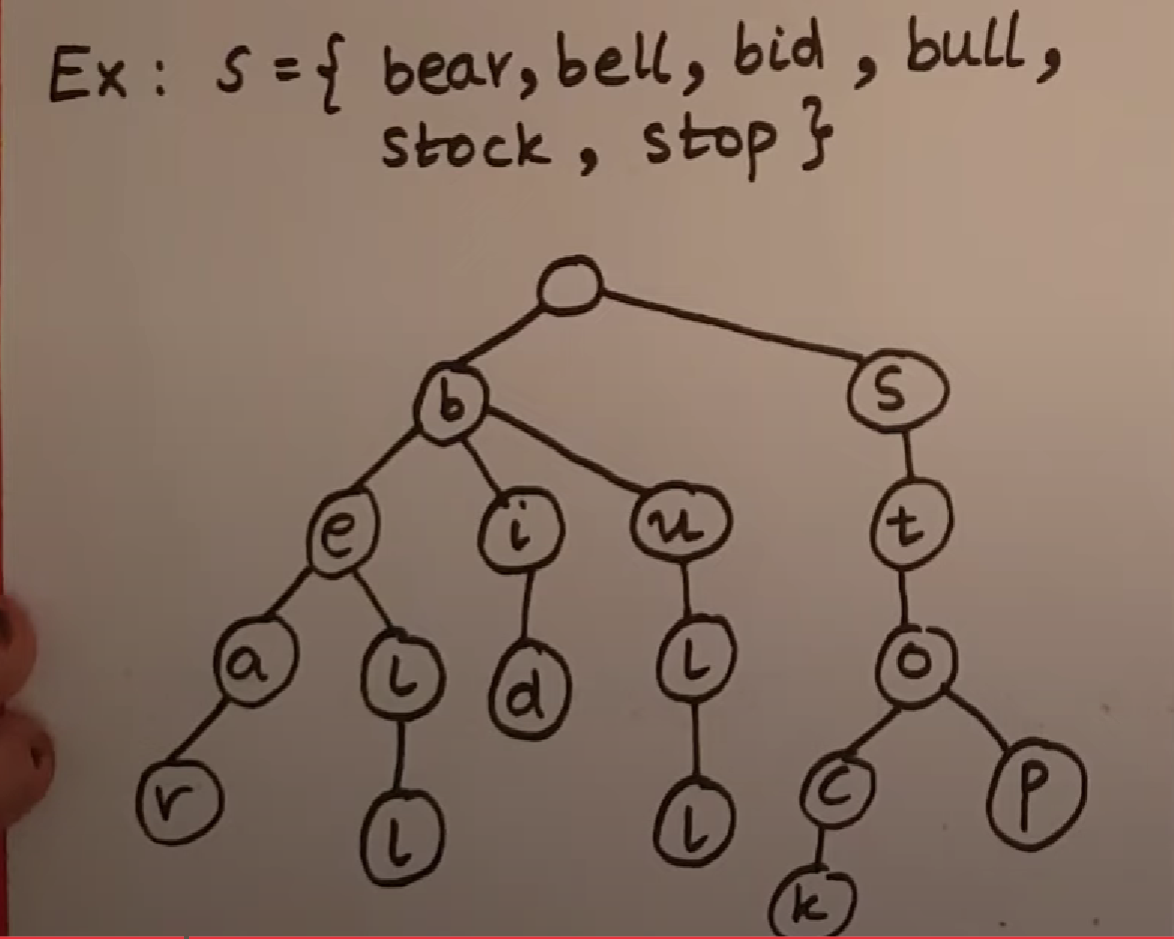 Ex: S = { bear, bell, bid, bull,
stock, stop }
b S
e i u t
a l l d l o
r l l c p
k